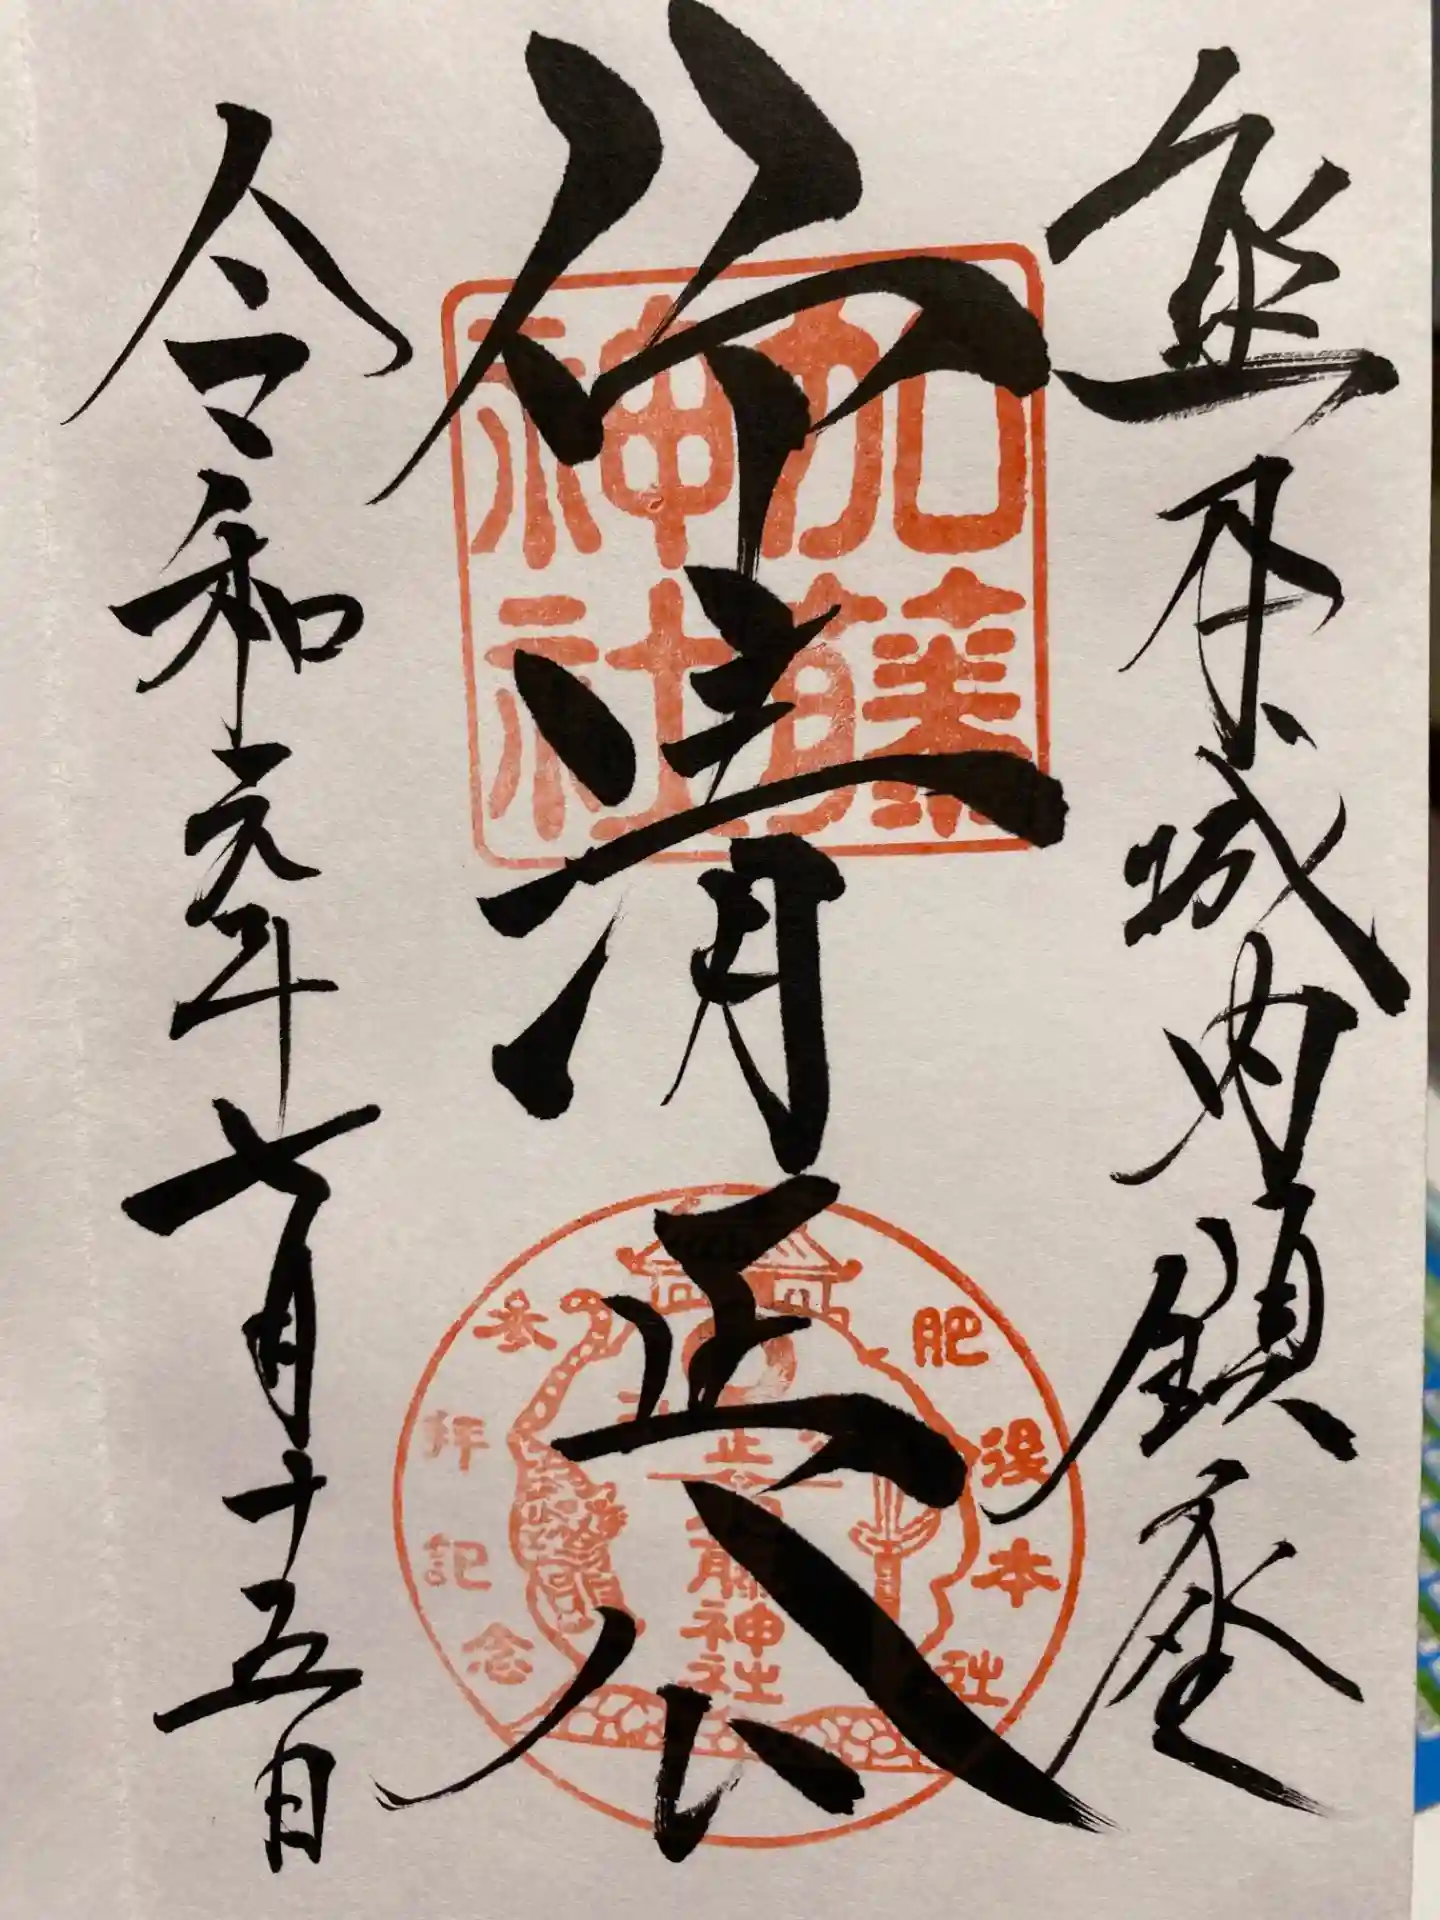 熊本城内鎮座
仰清正公
令和元年七月十五日
加藤
神社
肥後本社
参拝記念
藤神社